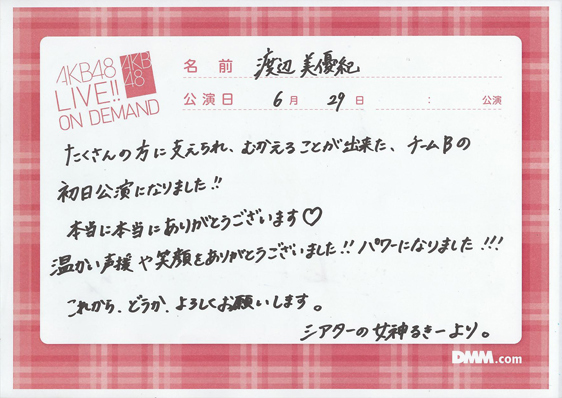 AKB48
LIVE!!
ON DEMAND
AKB
48
名前 渡辺美優紀
公演日 6月 29日 : 公演
たくさんの方に支えられ、むかえることが出来た、チームBの
初日公演になりました!!
本当に本当にありがとうございます♡
温かい声援や笑顔をありがとうございました!! パワーになりました!!!
これから、どうか、よろしくお願いします。
シアターの女神るきーより。
DMM.com